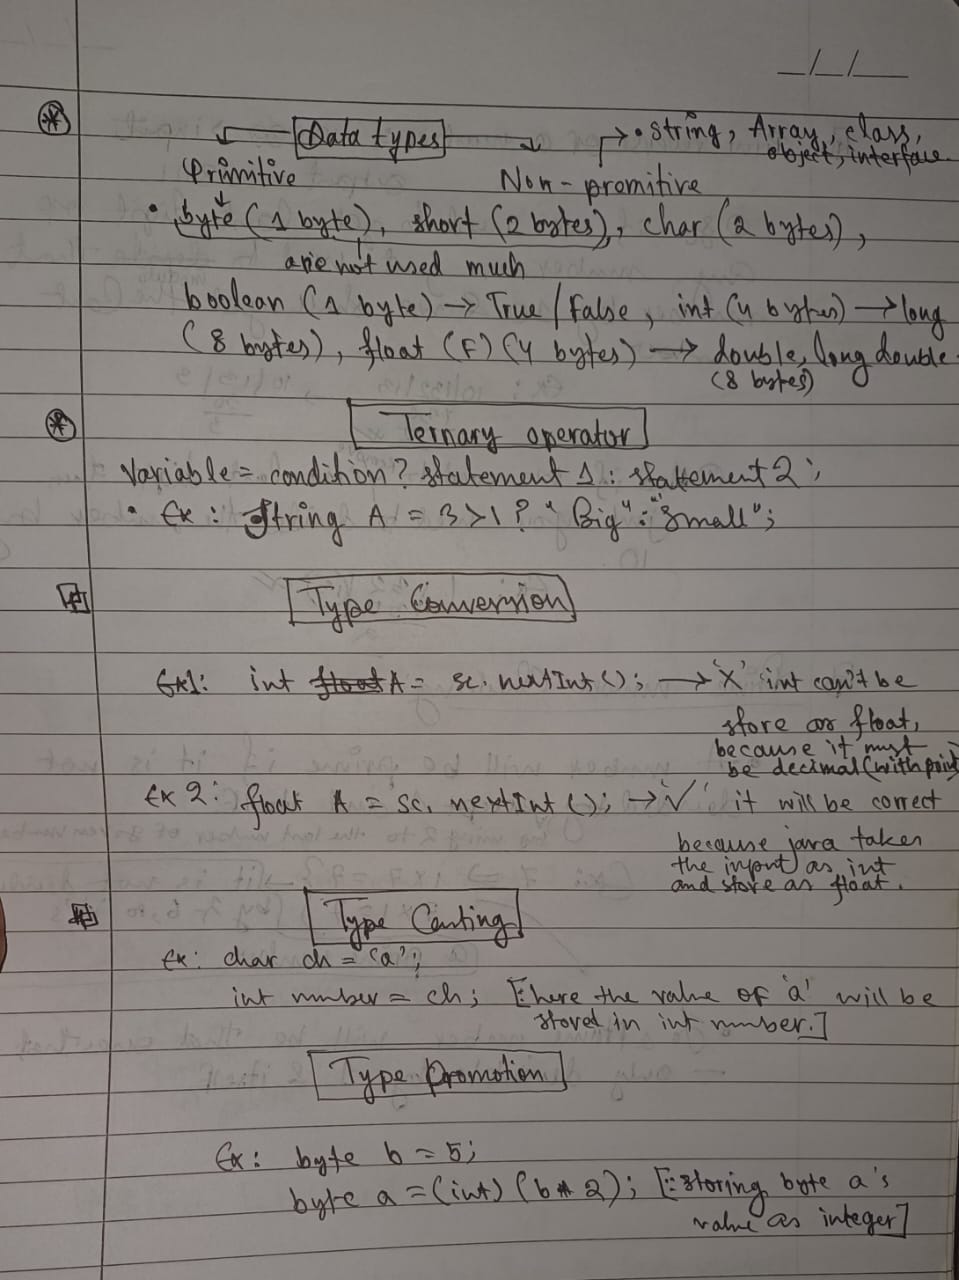 _/_/_
Data types → • string, Array, class,
object, interface.
Primitive Non-promitive
• byte (1 byte), short (2 bytes), char (2 bytes),
are not used much
boolean (1 byte) → True / False, int (4 bytes) → long
(8 bytes), float (F) (4 bytes) → double, long double
(8 bytes)
Ternary operator
Variable = condition? statement 1 : statement 2;
• Ex: String A = 3>1? "Big" : "Small";
Type Conversion
Ex1: int float A = sc. nextInt (); → 'X' int can't be
store as float,
because it must
be decimal (with point)
Ex 2: float A = sc. nextInt (); → '✓' it will be correct
because java takes
the input as int
and store as float.
Type Casting
Ex: char ch = 'a';
int number = ch; [here the value of 'a' will be
stored in int number.]
Type Promotion
Ex: byte b = 5;
byte a = (int) (b * 2); [: storing byte a's
value as integer]